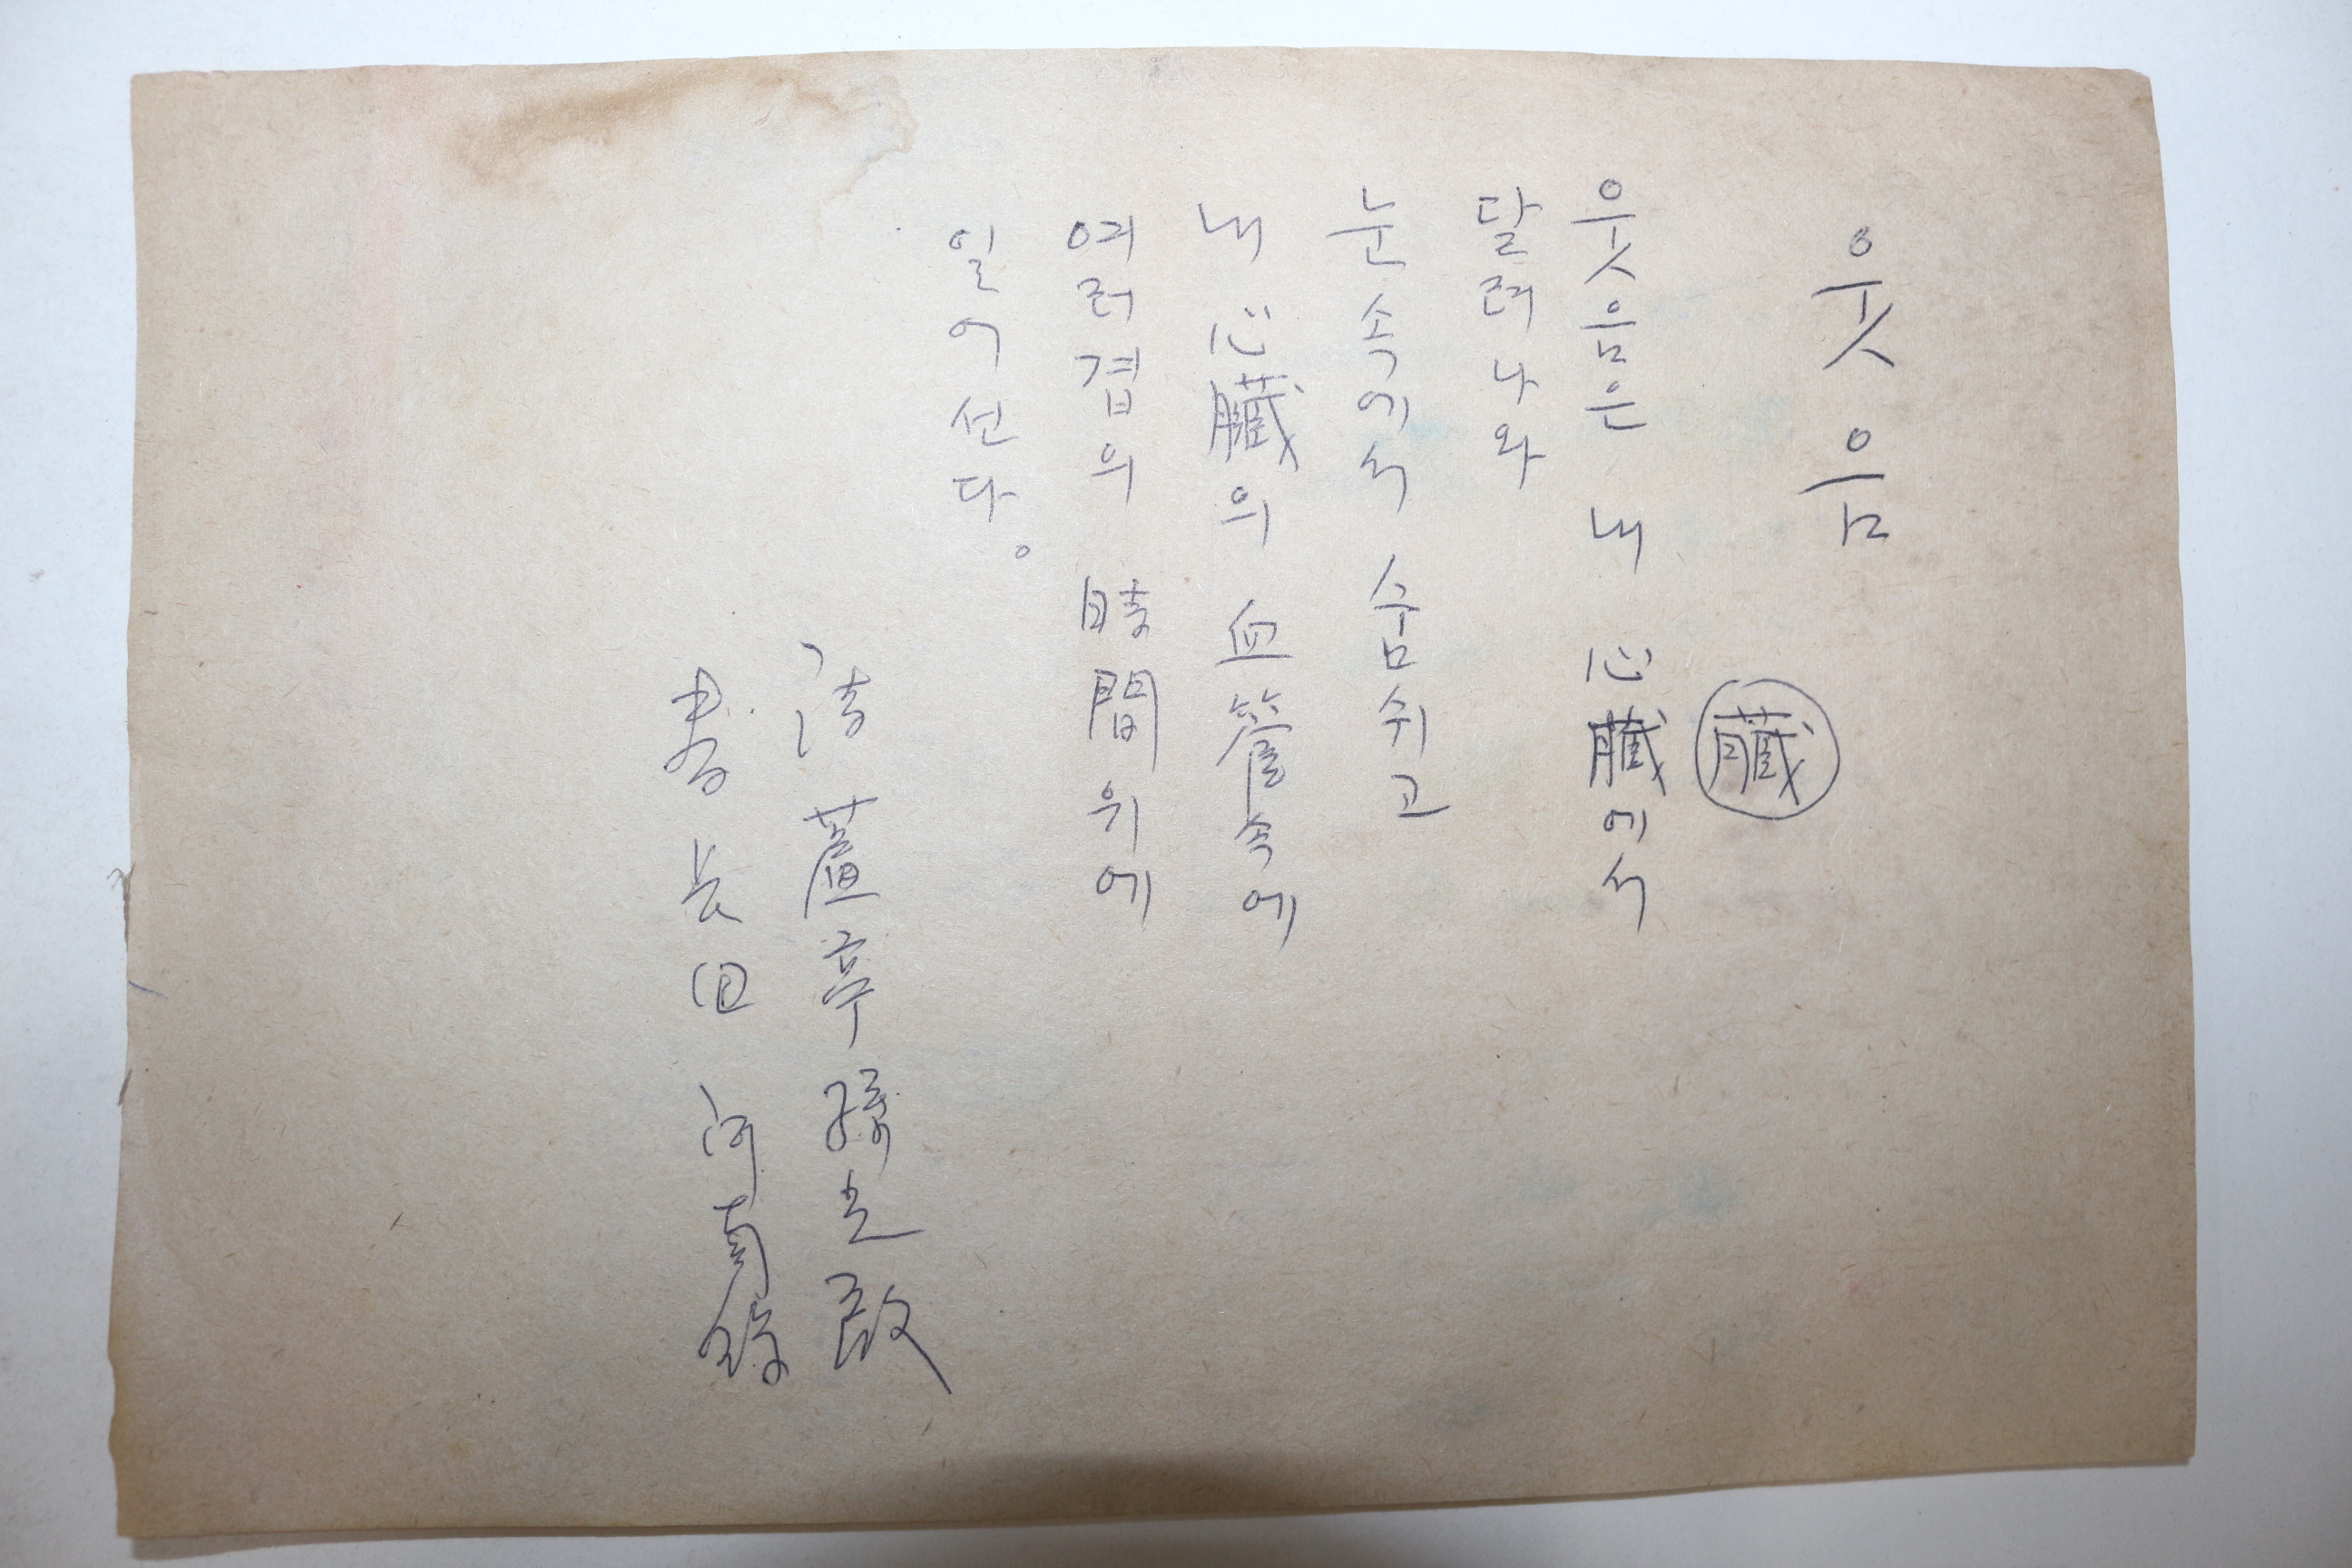 웃음
臟
웃음은 내 心臟에서
달려나와
눈속에서 숨쉬고
내 心臟의 血管속에
여러겹의 時間위에
일어선다。
詩 蘆亭 孫光殷
書 長田 河南鎬